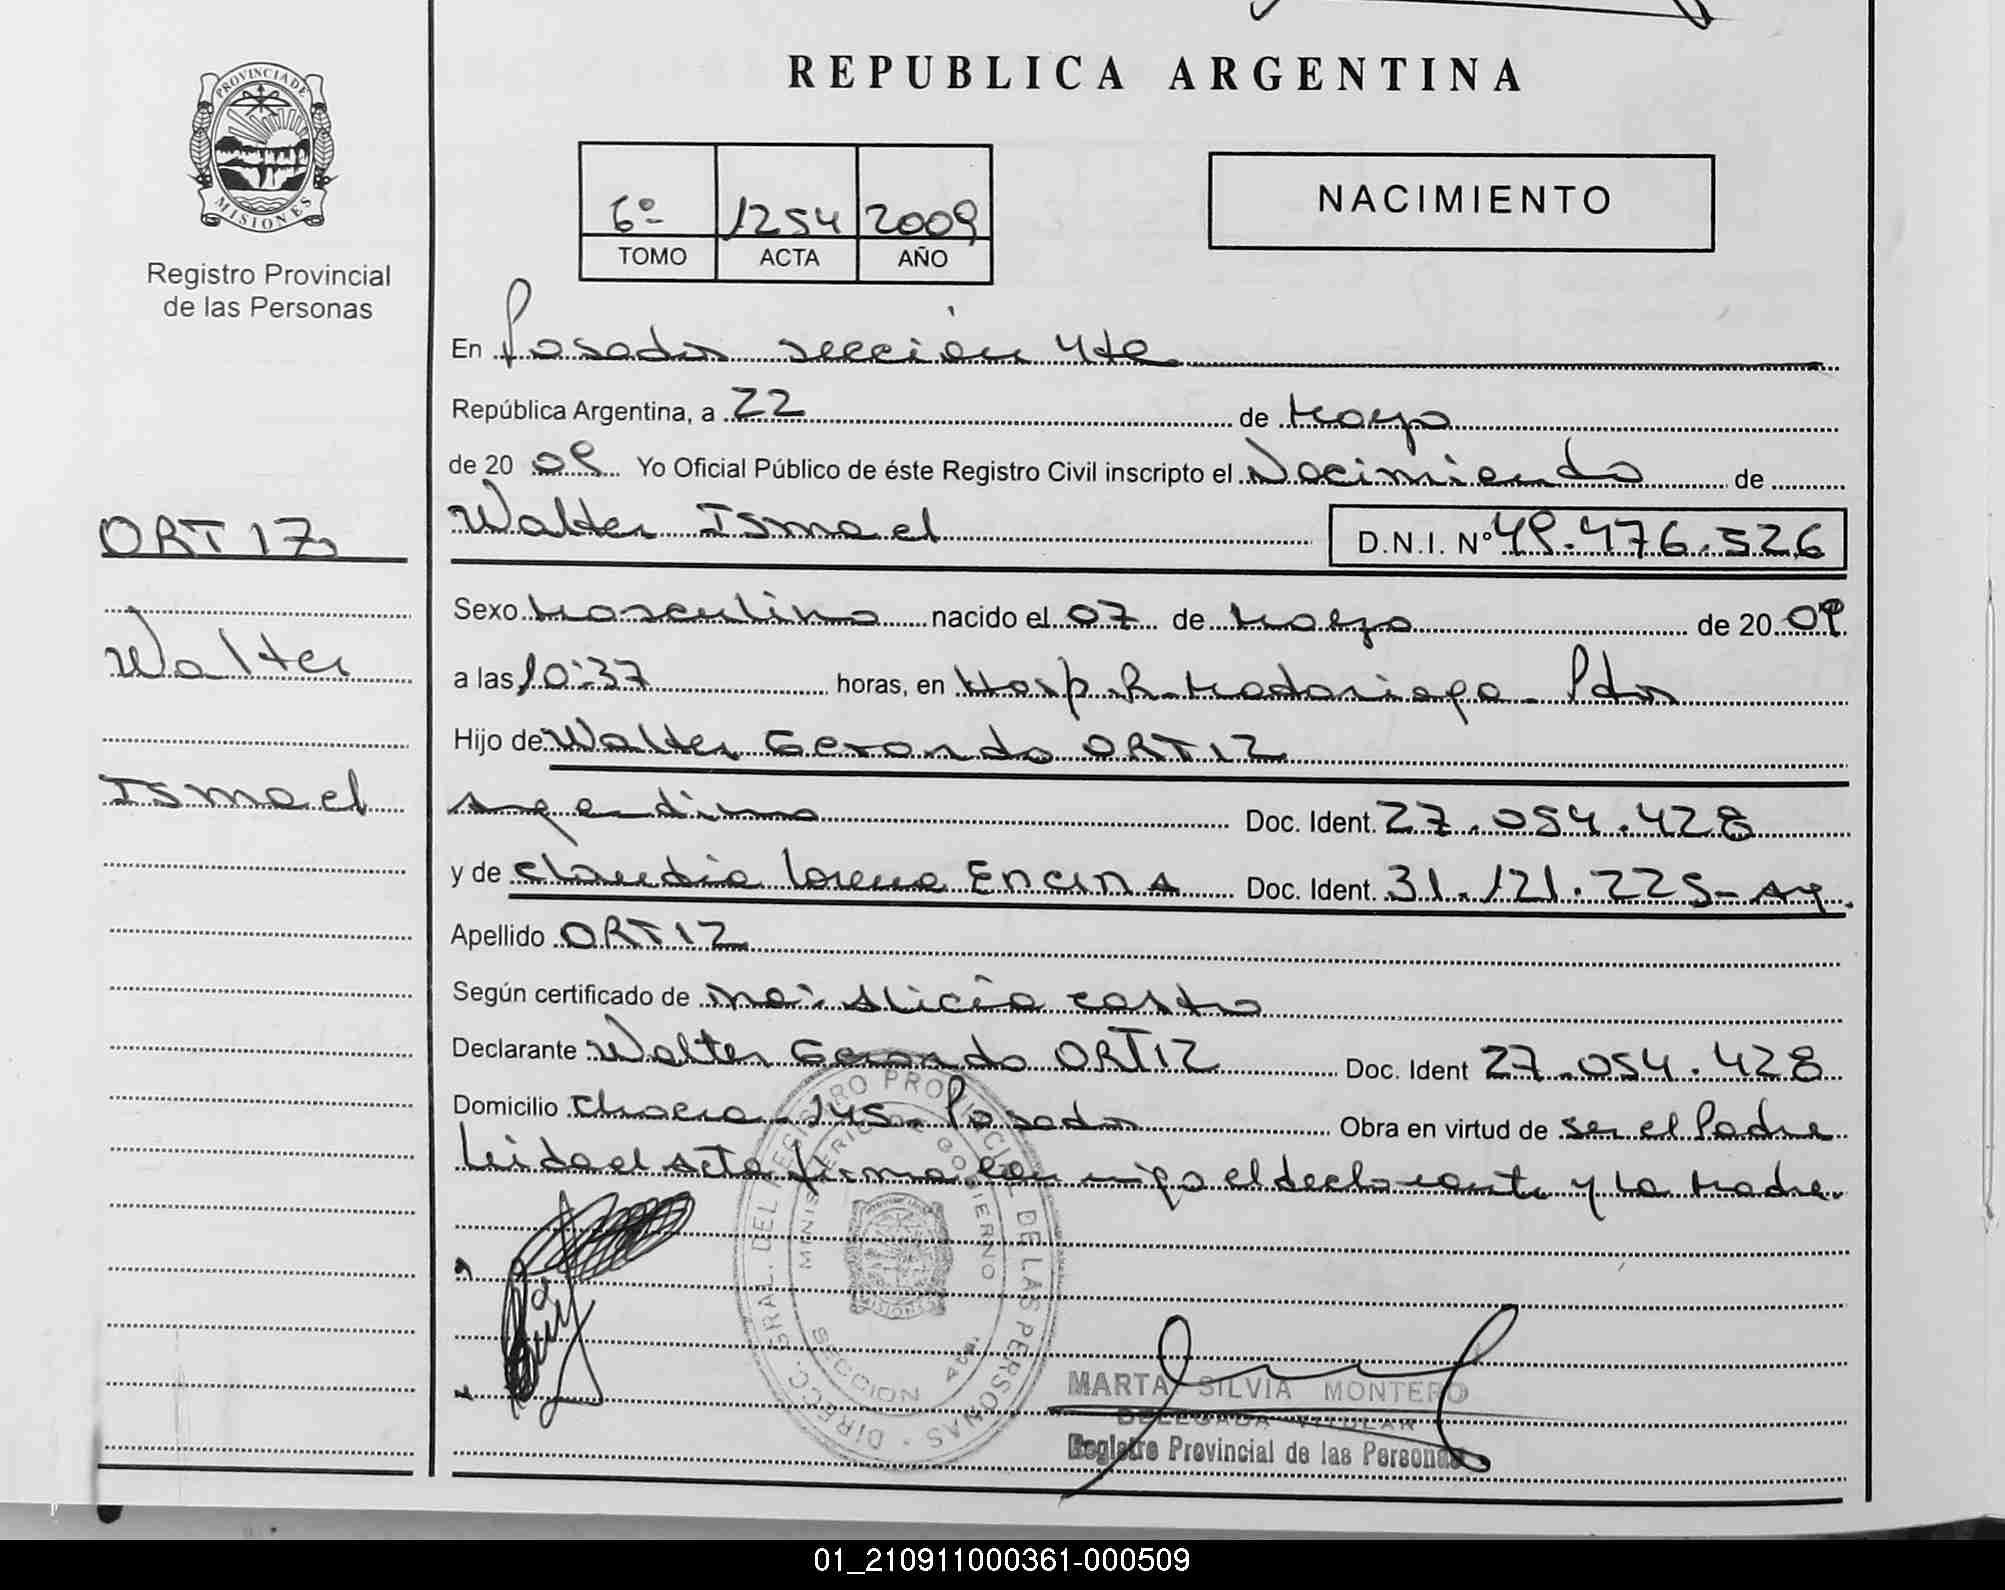 PROVINCIA DE
MISIONES
Registro Provincial
de las Personas
ORTIZ
Walter
Ismael
REPUBLICA ARGENTINA
6º 1254 2009
TOMO ACTA AÑO
NACIMIENTO
En Posadas sección 4ta
República Argentina, a 22 de Mayo
de 2009 Yo Oficial Público de éste Registro Civil inscripto el Nacimiento de
Walter Ismael D.N.I. Nº 49.476.526
Sexo Masculino nacido el 07 de Marzo de 2009
a las 10:37 horas, en Hosp. R. Madariaga - Pdas
Hijo de Walter Gerardo ORTIZ
Argentino Doc. Ident. 27.054.428
y de Claudia Lorena ENCINA Doc. Ident. 31.121.225 - Arg.
Apellido ORTIZ
Según certificado de Alicia Castro
Declarante Walter Gerardo ORTIZ Doc. Ident 27.054.428
Domicilio Chacra - 145 - Posadas Obra en virtud de ser el Padre
Leida el Acta firma con migo el declarante y La Madre.
DIRECC. GRAL. DEL REGISTRO PROVINCIAL DE LAS PERSONAS
MINISTERIO DE GOBIERNO
SECCION 4ta.
MISIONES
MARTA SILVIA MONTERO
DELEGADA TITULAR
Registro Provincial de las Personas
01_210911000361-000509